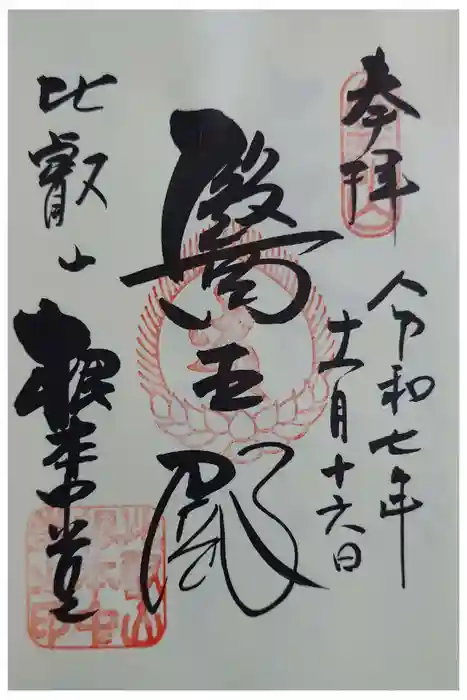 奉拝
令和七年
十一月十六日
醫王殿
比叡山
根本中堂